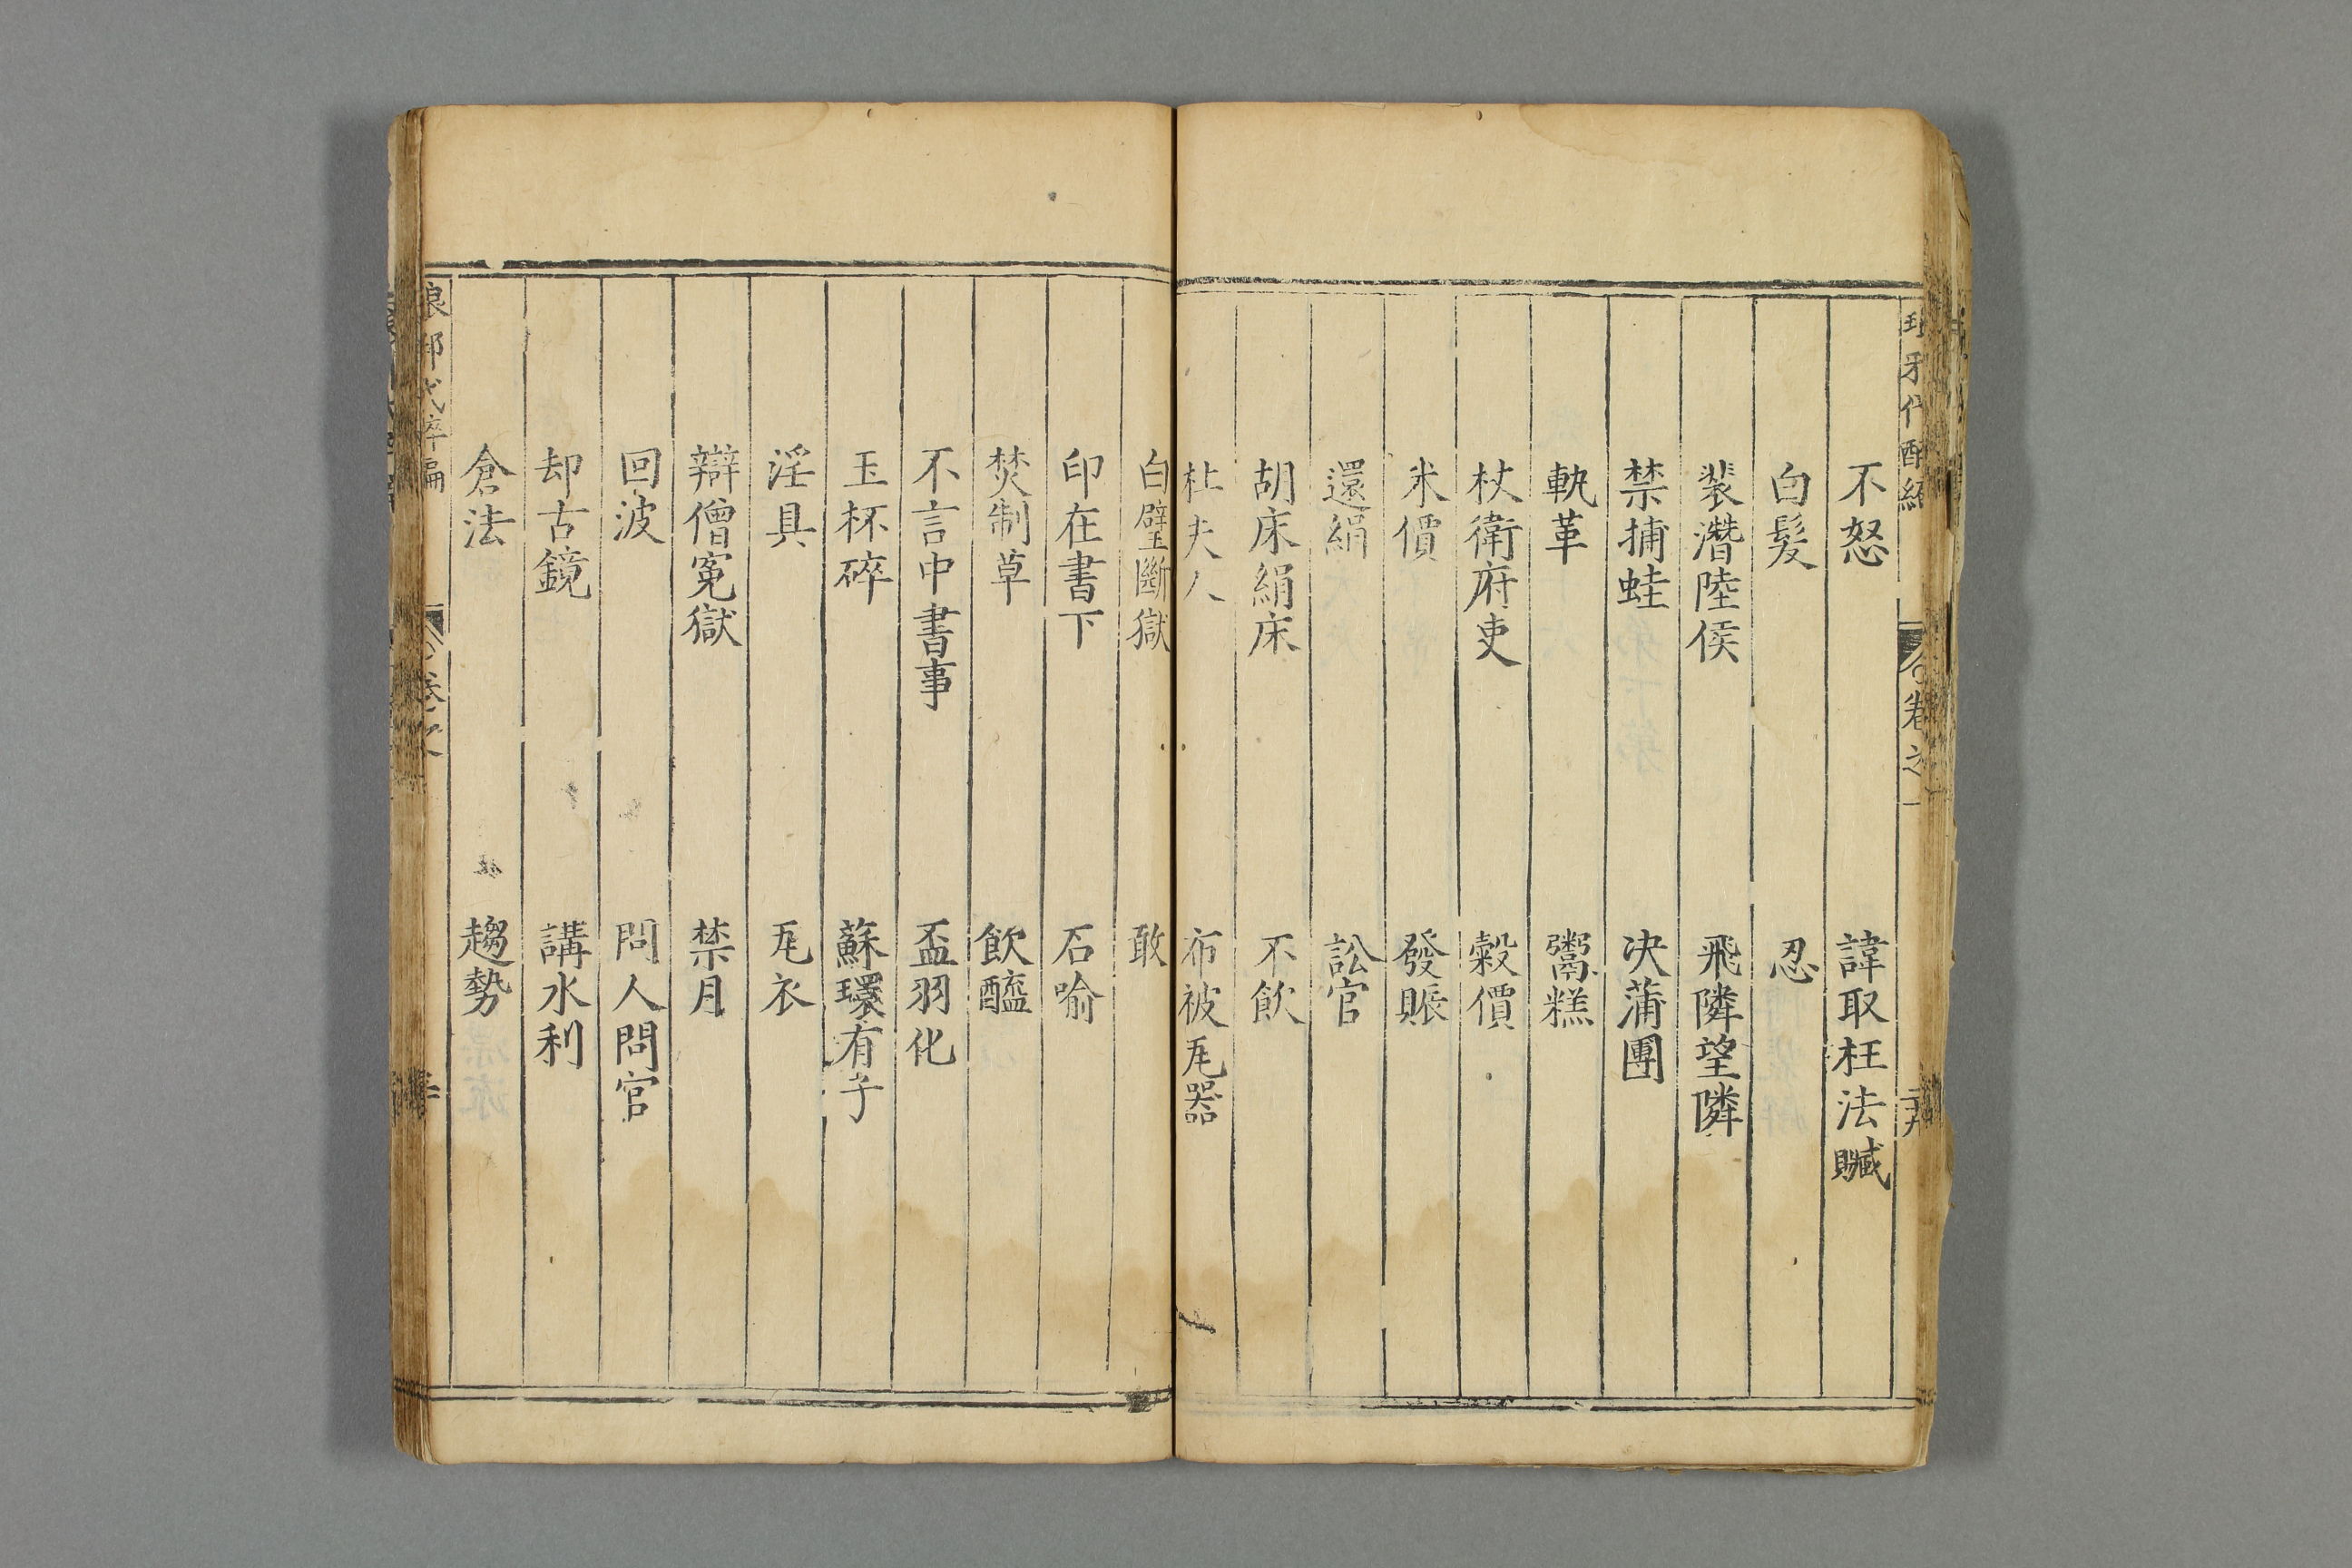 不怒　諱取枉法贓
白髮　忍
裴潛陸侯　飛隣望隣
禁捕蛙　决蒲團
執革　鬻糕
杖衛府吏　糓價
米價　發賑
還絹　訟官
胡床絹床　不飲
杜夫人　布被瓦器
白璧斷獄　敢
印在書下　石喻
焚制草　飲醯
不言中書事　盃羽化
玉杯碎　蘇環有子
淫具　瓦衣
辯僧寃獄　禁月
回波　問人問官
却古鏡　講水利
倉法　趨勢
琅邪代醉編　卷之